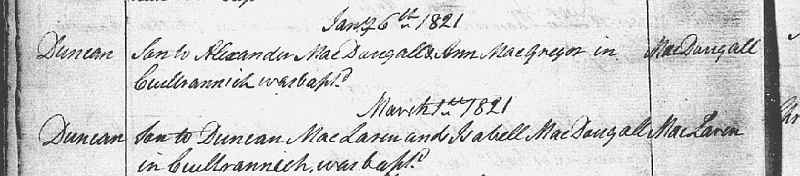 Jany 6th 1821
Duncan Son to Alexander MacDougall & Ann MacGregor in MacDougall
Cuiltrannich, was bapt.d
March 1st 1821
Duncan Son to Duncan MacLaren and Isabell MacDougall MacLaren
in Cuiltrannich, was bapt.d